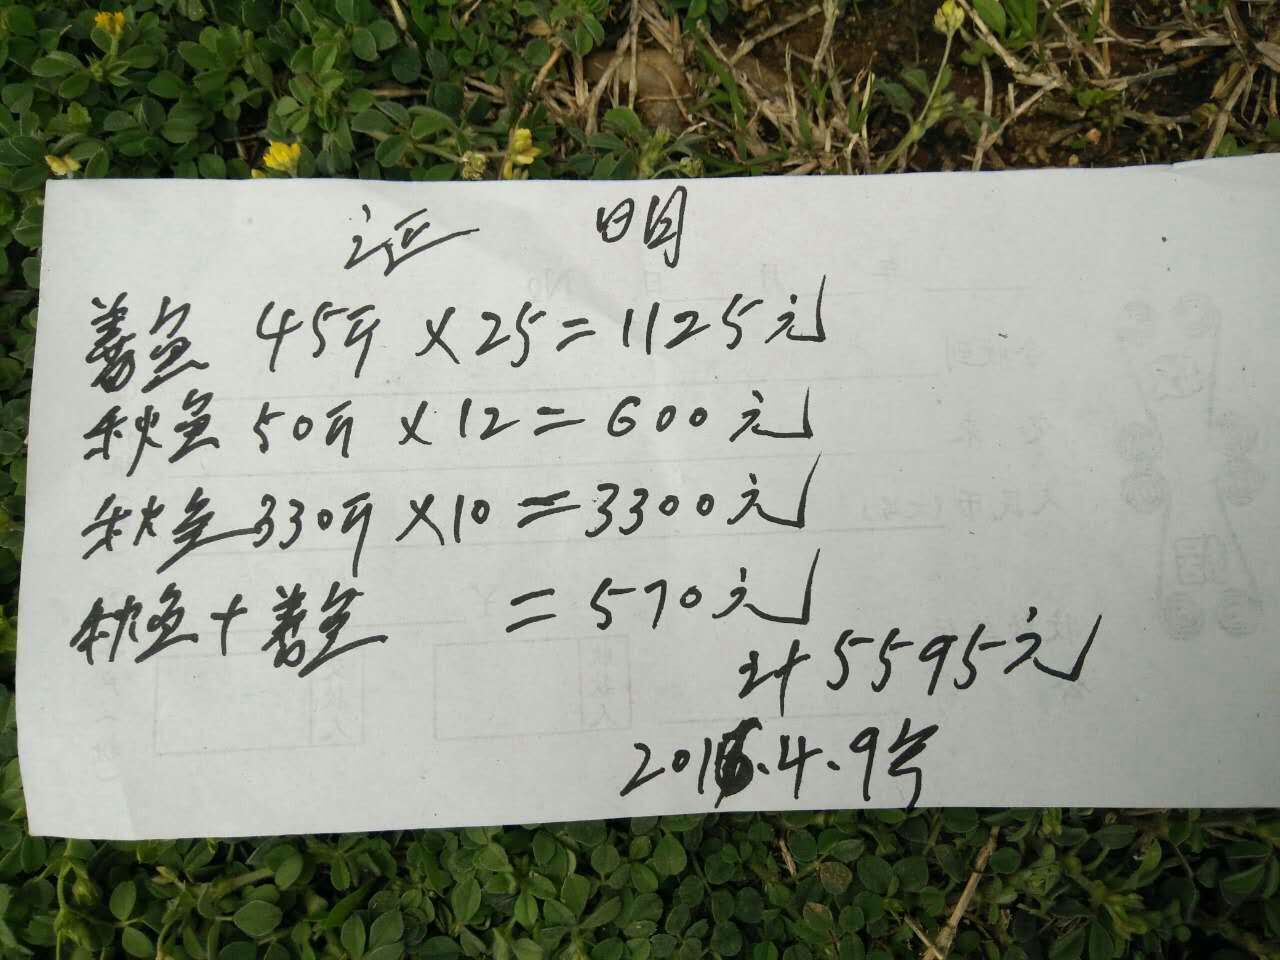 证 明
善鱼 45斤 × 25 = 1125元
秋鱼 50斤 × 12 = 600元
秋鱼 330斤 × 10 = 3300元
秋鱼 + 善鱼 = 570元
计 5595元
2016.4.9号